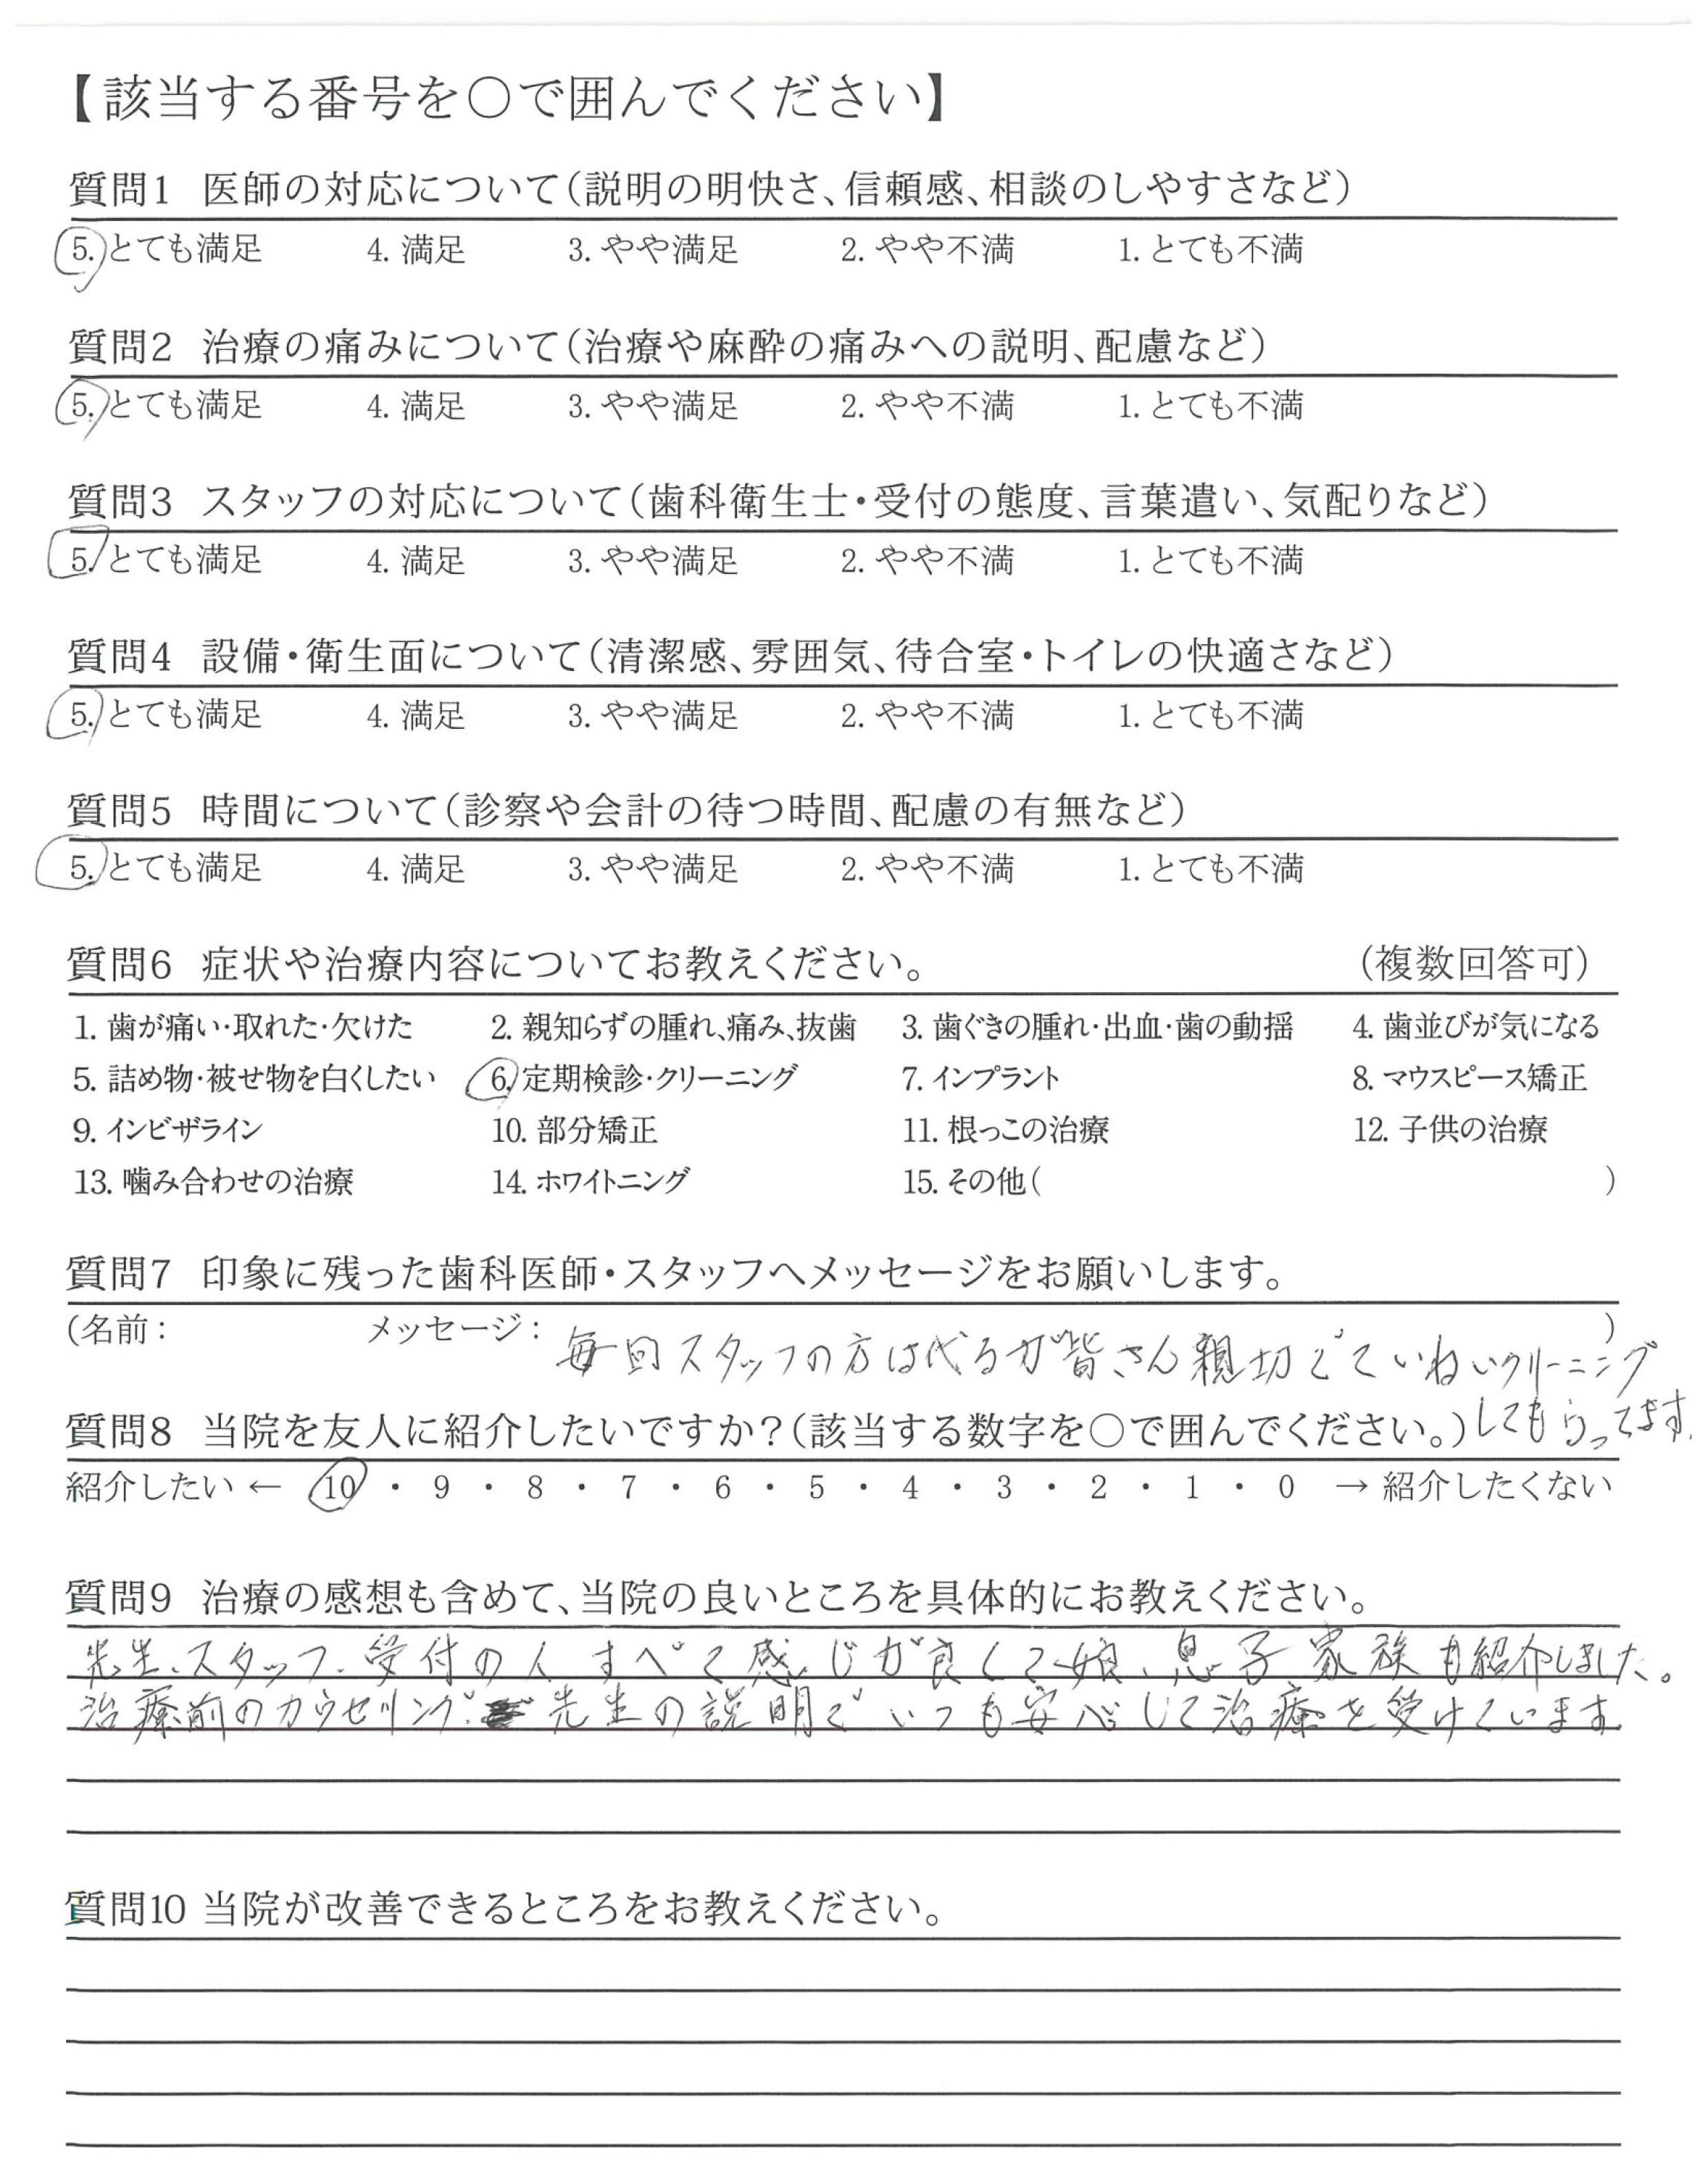 【該当する番号を○で囲んでください】
質問1 医師の対応について(説明の明快さ、信頼感、相談のしやすさなど)
5. とても満足 4. 満足 3. やや満足 2. やや不満 1. とても不満
質問2 治療の痛みについて(治療や麻酔の痛みへの説明、配慮など)
5. とても満足 4. 満足 3. やや満足 2. やや不満 1. とても不満
質問3 スタッフの対応について(歯科衛生士・受付の態度、言葉遣い、気配りなど)
5. とても満足 4. 満足 3. やや満足 2. やや不満 1. とても不満
質問4 設備・衛生面について(清潔感、雰囲気、待合室・トイレの快適さなど)
5. とても満足 4. 満足 3. やや満足 2. やや不満 1. とても不満
質問5 時間について(診察や会計の待つ時間、配慮の有無など)
5. とても満足 4. 満足 3. やや満足 2. やや不満 1. とても不満
質問6 症状や治療内容についてお教えください。 (複数回答可)
1. 歯が痛い・取れた・欠けた 2. 親知らずの腫れ、痛み、抜歯 3. 歯ぐきの腫れ・出血・歯の動揺 4. 歯並びが気になる
5. 詰め物・被せ物を白くしたい 6. 定期検診・クリーニング 7. インプラント 8. マウスピース矯正
9. インビザライン 10. 部分矯正 11. 根っこの治療 12. 子供の治療
13. 噛み合わせの治療 14. ホワイトニング 15. その他( )
質問7 印象に残った歯科医師・スタッフへメッセージをお願いします。
(名前: メッセージ: )
毎回スタッフの方は代るが皆さん親切でていねいクリーニング
してもらってます.
質問8 当院を友人に紹介したいですか?(該当する数字を○で囲んでください。)
紹介したい ← 10 ・ 9 ・ 8 ・ 7 ・ 6 ・ 5 ・ 4 ・ 3 ・ 2 ・ 1 ・ 0 → 紹介したくない
質問9 治療の感想も含めて、当院の良いところを具体的にお教えください。
先生、スタッフ、受付の人すべて感じが良くて娘、息子家族も紹介しました。
治療前のカウセリング、先生の説明でいつも安心して治療を受けています.
質問10 当院が改善できるところをお教えください。